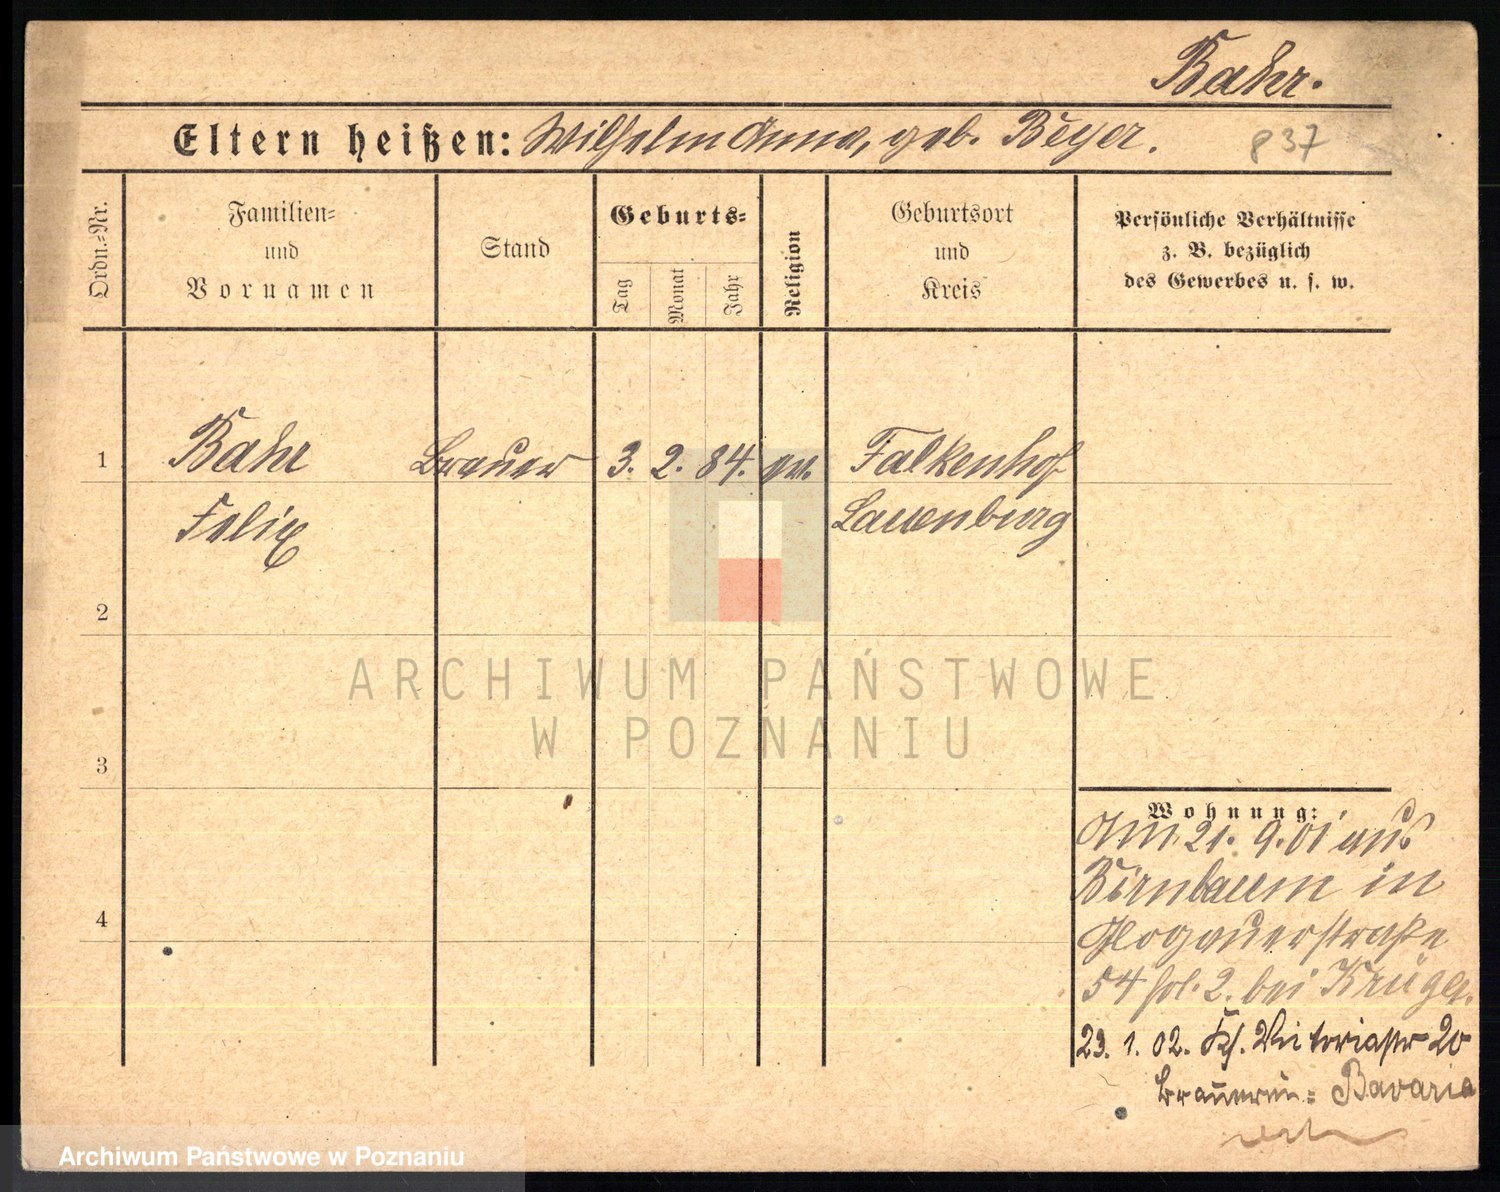 Bahr.
Eltern heißen: Wilhelm Anna, geb. Beyer.
837
Ordn.-Nr.
Familien-
und
Vornamen
Stand
Geburts-
Tag
Monat
Jahr
Religion
Geburtsort
und
Kreis
Persönliche Verhältnisse
z. B. bezüglich
des Gewerbes u. s. w.
1
Bahr
Brauer
3. 2. 84.
Falkenhof
Felix
Lauenburg
2
ARCHIWUM PAŃSTWOWE
W POZNANIU
3
Wohnung:
Am 21. 9. 01 aus
Birnbaum in
4
Glogauerstraße
54 bei Krüger.
23. 1. 02. Victoriastr 20
Brauerei- Bavaria
Archiwum Państwowe w Poznaniu